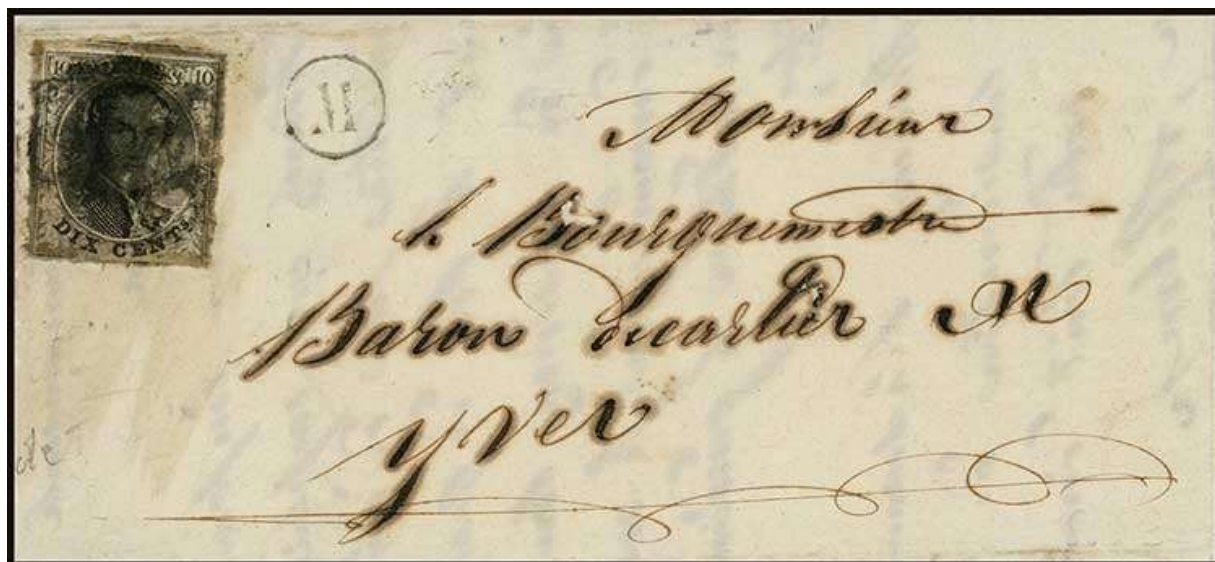 10 10
DIX CENTS.
M
Monsieur
le Bourguemestre
Baron decartier
Yves